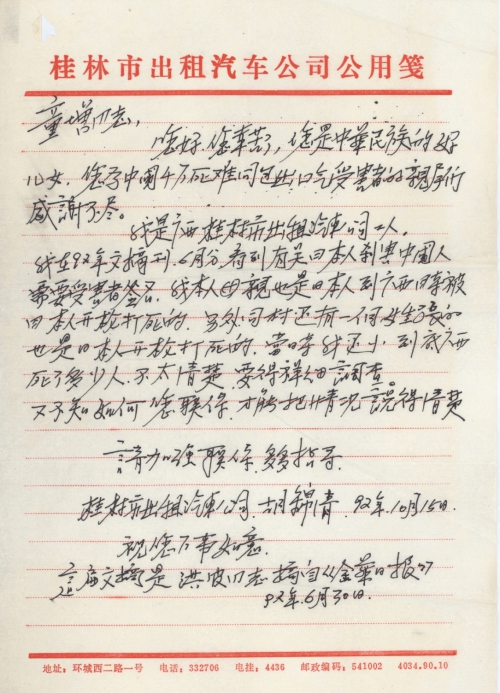 桂林市出租汽车公司公用笺
童增同志，
您好您辛苦了，您是中華民族的好
儿女，您为中国千万死难同胞出口气受害者的親属们
感謝不尽。
我是广西桂林市出租汽車公司工人。
我在92年文摘刊，6月分，看到有关日本人剎害中国人
需要受害者签名。我本人母親也是日本人到广西時被
日本人开枪打死的，另外同村还有一个姓張的
也是日本人开枪打死的，當時我还小，到底广西
死了多少人，不太清楚，要得祥细調查。
又不知如何您联係，才能把情况說得清楚
請加强联係，多多指导。
桂林市出租汽車公司，胡錦清，92年10月15日。
祝您万事如意。
這扁文摘是洪波同志摘自《金華日报》
92年6月30日。
地址：环城西二路一号 电话：332706 电挂：4436 邮政编码：541002 4034.90.10